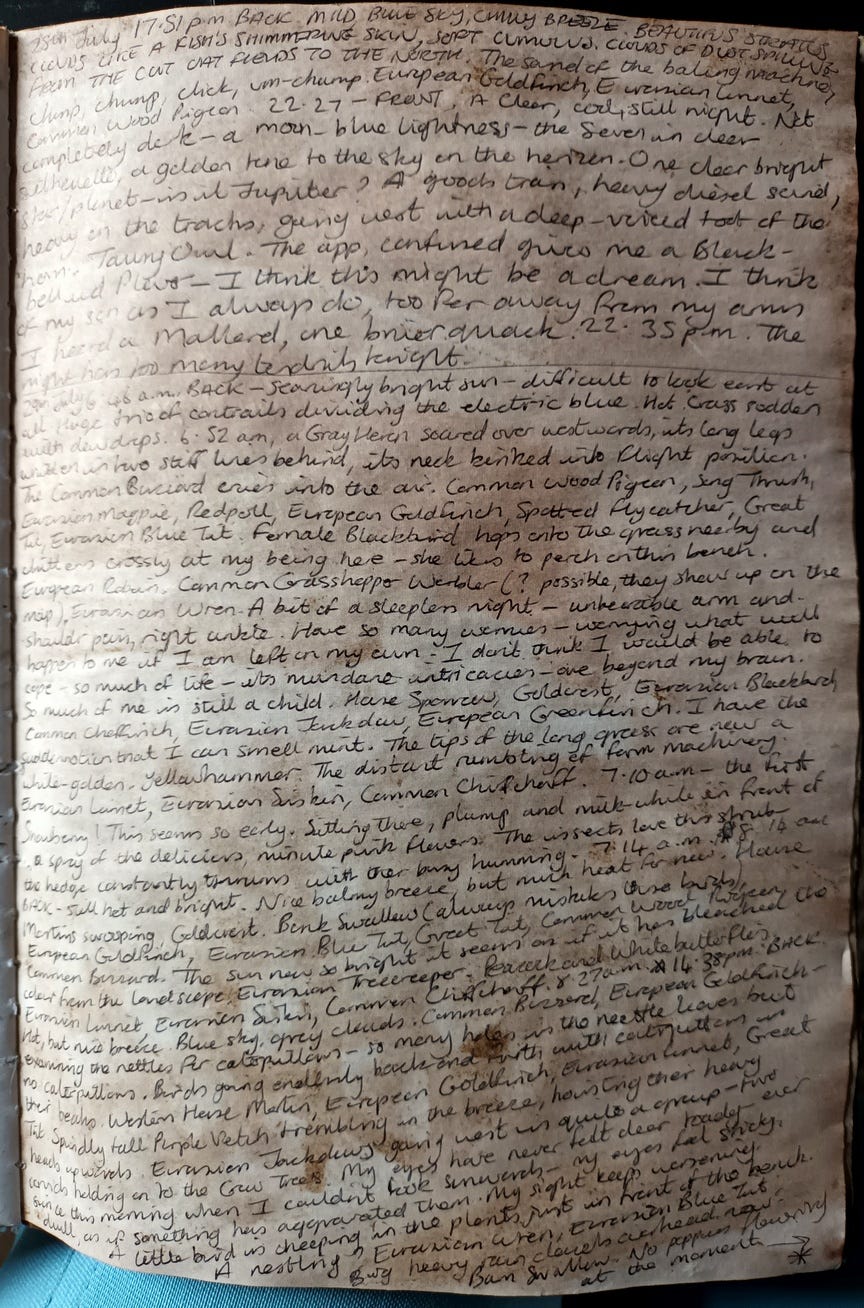 28th July 17.51pm BACK MILD BLUE SKY, CHILLY BREEZE. BEAUTIFUL STRATUS
CLOUDS LIKE A FISH'S SHIMMERING SKIN, SOFT CUMULUS. CLOUDS OF DUST
FROM THE CUT OAT FIELDS TO THE NORTH. The sound of the baling machinery,
chump, chump, click, um-chump. European Goldfinch, Eurasian Linnet,
Common Wood Pigeon. 22.27 - FRONT. A clear, cool, still night. Not
completely dark - a moon-blue lightness - the Severn in clear
silhouette, a golden tone to the sky on the horizon. One clear bright
star/planet - is it Jupiter? A goods train, heavy diesel sound,
heavy on the tracks, going west with a deep-voiced toot of the
horn. Tawny Owl. The app, confused gives me a Black-
bellied Plover - I think this might be a dream. I think
of my son as I always do, too far away from my arms
I heard a Mallard, one brief quack. 22.35pm. The
night has too many tendrils tonight.
29th July 6 48 a.m. BACK - searingly bright sun - difficult to look east at
all. Huge trio of contrails dividing the electric blue. Hot. Grass sodden
with dewdrops. 6.52 am, a Gray Heron soared over westwards, its long legs
in two stiff lines behind, its neck kinked into flight position.
The Common Buzzard cries into the air. Common Wood Pigeon, Song Thrush,
Eurasian Magpie, Redpoll, European Goldfinch, Spotted Flycatcher, Great
Tit, Eurasian Blue Tit. Female Blackbird hops onto the grass nearby and
chitters crossly at my being here - she likes to perch on this bench.
European Robin. Common Grasshopper Warbler (? possible, they show up on the
map), Eurasian Wren. A bit of a sleepless night - unbearable arm and
shoulder pain, right ankle. Have so many worries - worrying what will
happen to me if I am left on my own - I don't think I would be able to
cope - so much of life - its mundane intricacies - are beyond my brain.
So much of me is still a child. House Sparrow, Goldcrest, Eurasian Blackbird
Common Chaffinch, Eurasian Jackdaw, European Greenfinch. I have the
sudden notion that I can smell mint. The tips of the long grass are now a
white-golden. Yellowhammer. The distant rumbling of farm machinery.
Eurasian Linnet, Eurasian Siskin, Common Chiffchaff. 7.10 a.m - the first
Snowberry! This seems so early. Sitting there, plump and milk-white in front of
a spray of the delicious, minute pink flowers. The insects love this shrub
the hedge constantly thrums with their busy humming. 7.14 a.m. 8.14 am
BACK - still hot and bright. Nice balmy breeze, but much heat for now. House
Martins swooping, Goldcrest. Bank Swallow (always mistakes these birds),
European Goldfinch, Eurasian Blue Tit, Great Tit, Common Wood Pigeon,
Common Buzzard. The sun now so bright it seems as if it has bleached the
color from the landscape, Eurasian Treecreeper. Peacock and White butterflies.
Eurasian Linnet, Eurasian Siskin, Common Chiffchaff. 8 27am. 14.38pm. BACK
Hot, but nice breeze. Blue sky, grey clouds. Common Buzzard, European Goldfinch -
examining the nettles for caterpillars - so many holes in the nettle leaves but
no caterpillars. Birds going endlessly back and forth with caterpillars in
their beaks. Western House Martin, European Goldfinch, Eurasian Linnet, Great
Tit. Spindly tall Purple Vetch trembling in the breeze, hoisting their heavy
heads upwards. Eurasian Jackdaws going west in quite a group - two
corvids holding on to the Crow Trees. My eyes have never felt clear today ever
since this morning when I couldn't look sunwards - my eyes feel sticky.
dull, as if something has aggravated them. My sight keeps worsening.
A little bird is cheeping in the plants just in front of the bench.
A nestling? Eurasian Wren, Eurasian Blue Tit.
Big heavy rain clouds overhead now.
Barn Swallow. No poppies flowering
at the moment →
*